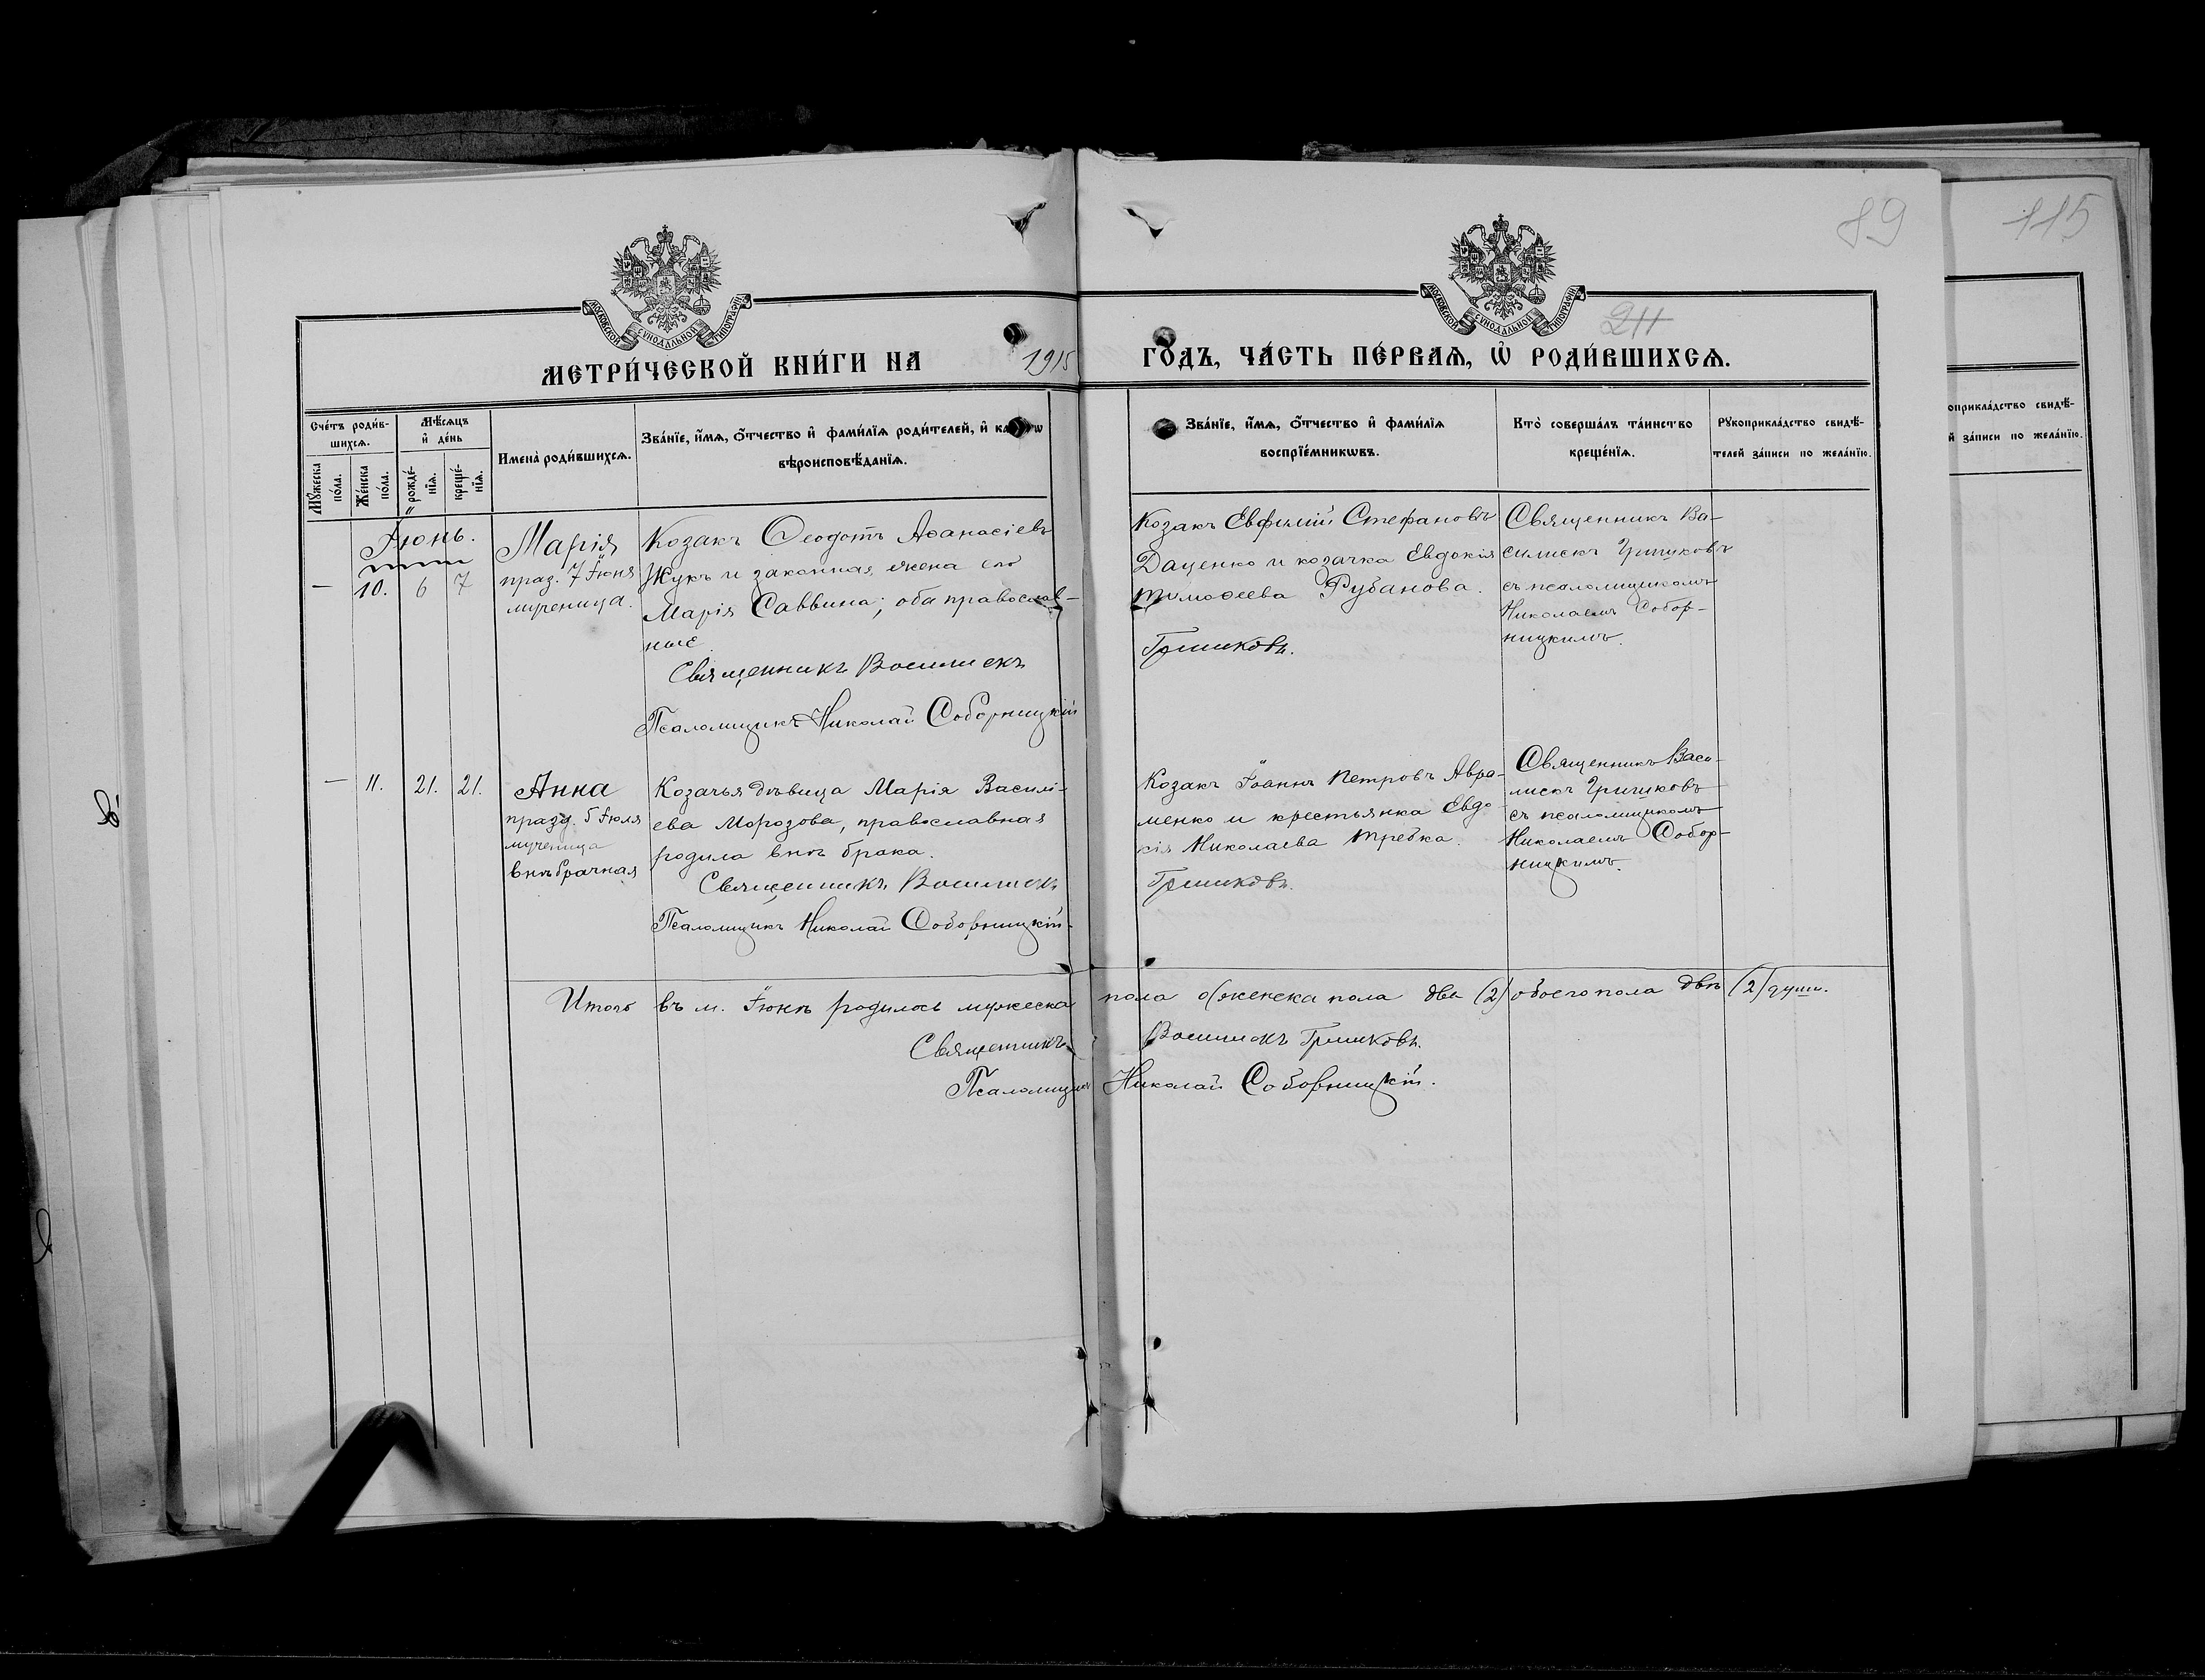 89
115
211
МОСКОВСКОЙ СѴНОДАЛЬНОЙ ТИПОГРАФІИ
МОСКОВСКОЙ СѴНОДАЛЬНОЙ ТИПОГРАФІИ
МЕТРИ́ЧЕСКОЙ КНИ́ГИ НА 1915 ГО́ДЪ, ЧА́СТЬ ПЕ́РВАѦ, Ѡ҆ РОДИ́ВШИХСѦ.
Сче́тъ роди́в-
шихсѧ.
Мꙋ́жеска по́ла.
Же́нска по́ла.
Мѣ́сѧцъ и҆ де́нь
рожде́-нїѧ.
креще́-нїѧ.
И҆мена̀ роди́вшихсѧ.
Зва́нїе, и҆́мѧ, ѻ҆́тчество и҆ фами́лїѧ роди́телей, и҆
вѣроисповѣ́данїѧ.
Зва́нїе, и҆́мѧ, ѻ҆́тчество и҆ фами́лїѧ
воспрїе́мникѡвъ.
Кто̀ соверша́лъ та́инство
креще́нїѧ.
Рꙋкоприкла́дство свидѣ́-
телей за́писи по жела́нїю.
оприкла́дство свидѣ́-
й за́писи по жела́нїю.
Іюнь.
— 10. 6 7
Марія
праз. 7 Іюня
мученица.
Козакъ Ѳеодотъ Аѳанасіевъ
Жукъ и законная жена его
Марія Саввина; оба православ-
ные.
Священникъ Василискъ
Псаломщикъ Николай Соборницкій
Козакъ Евфимій Стефановъ
Даценко и козачка Евдокія
Тимоѳеева Рубанова.
Гришковъ.
Священникъ Ва-
силискъ Гришковъ
съ псаломщикомъ
Николаемъ Собор-
ницкимъ.
— 11. 21. 21.
Анна
празд. 5 Іюля
мученица
внѣбрачная
Козачья дѣвица Марія Василі-
ева Морозова, православная
родила внѣ брака.
Священникъ Василискъ
Псаломщикъ Николай Соборницкій
Козакъ Іоаннъ Петровъ Авра-
менко и крестьянка Евдо-
кія Николаева Требка.
Гришковъ.
Священникъ Васи-
лискъ Гришковъ
съ псаломщикомъ
Николаемъ Собор-
ницкимъ.
Итого въ м. Іюнѣ родилось мужеска пола 0/женска пола два (2) обоего пола двѣ (2) души.
Священникъ Василискъ Гришковъ.
Псаломщикъ Николай Соборницкій.